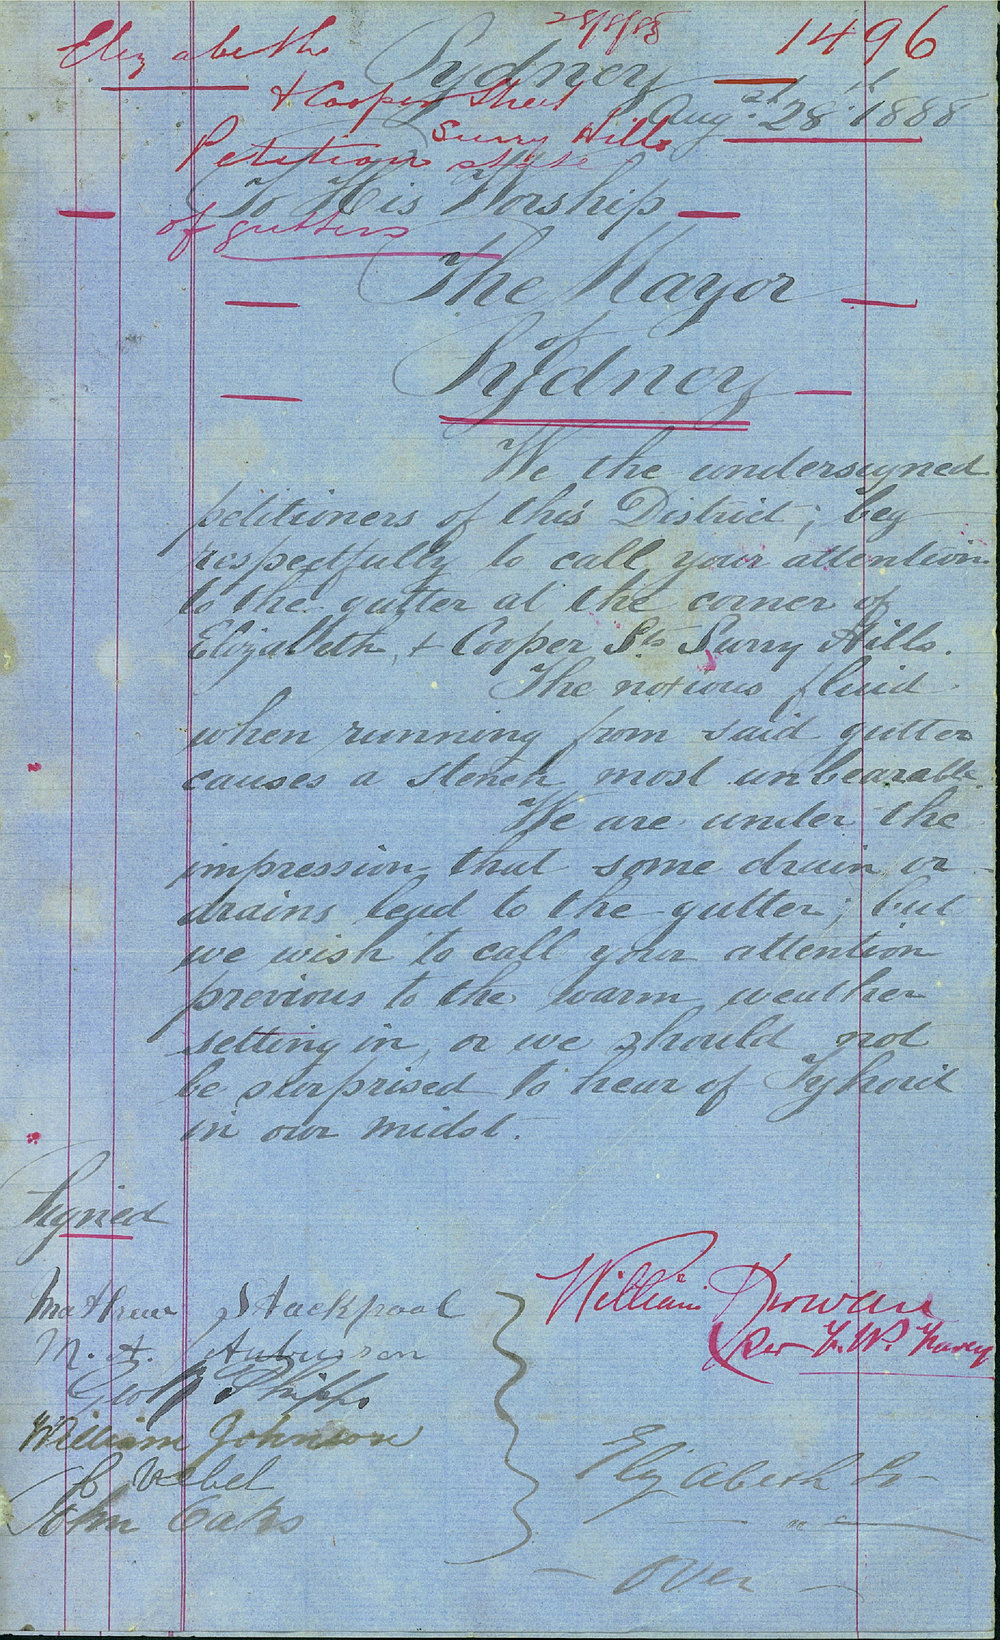 28/8/88
1496
Elizabeth
& Cooper Street
Surry Hills
Petition state
of gutters
Sydney
Aug. 28th 1888
To His Worship
The Mayor
of
Sydney
We the undersigned
petitioners of this District; beg
respectfully to call your attention
to the gutter at the corner of
Elizabeth, & Cooper Sts Surry Hills.
The noxious fluid
when running from said gutter
causes a stench most unbearable.
We are under the
impression that some drain or
drains lead to the gutter; but
we wish to call your attention
previous to the warm weather
setting in, or we should not
be surprised to hear of Tyhoid
in our midst.
Signed
Mathew Stackpool
M. A. Aubusson
Geo Phipps
William Johnson
C Webel
John Oaks
William
Per F. W.
Elizabeth St
over